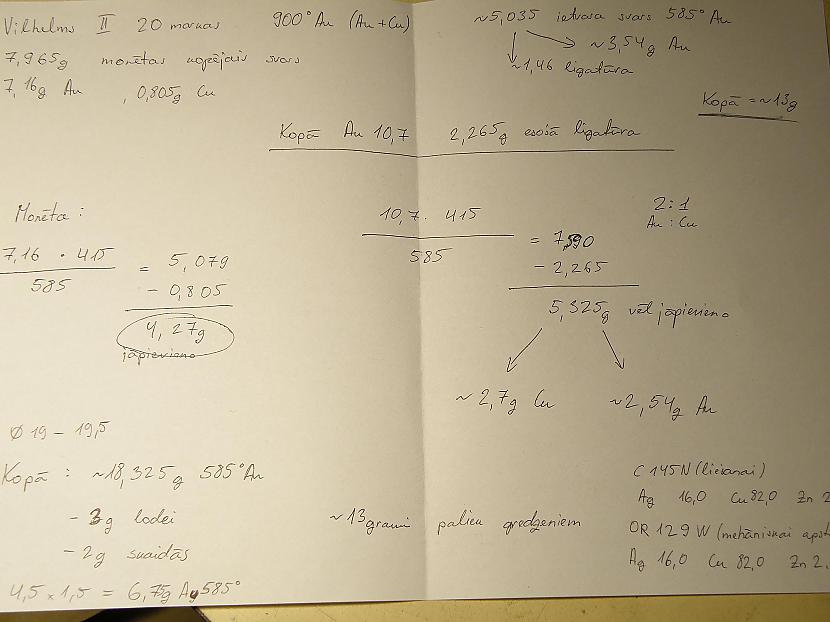 Vilhelms II 20 markas 900° Au (Au+Cu)
7,965g monētas kopējais svars
7,16g Au , 0,805g Cu
~5,035 ietvara svars 585° Au
~3,54g Au
~1,46 ligatūra
Kopā = ~13g
Kopā Au 10,7 2,265g esošā ligatūra
Monēta :
7,16 · 415
585
= 5,079
- 0,805
4,27g
jāpievieno
10,7 · 415
585
= 7,590
- 2,265
5,325g vēl jāpievieno
2:1
Au : Cu
~2,7g Cu ~2,54g Au
Ø 19 – 19,5
Kopā : ~18,325g 585° Au
- 3g lodei
- 2g
~13 grami paliek gredzeniem
4,5 × 1,5 = 6,75g 585°
C 145N (liešanai)
Ag 16,0 Cu 82,0 Zn 2
OR 129 W (mehāniskai apst
Ag 16,0 Cu 82,0 Zn 2.